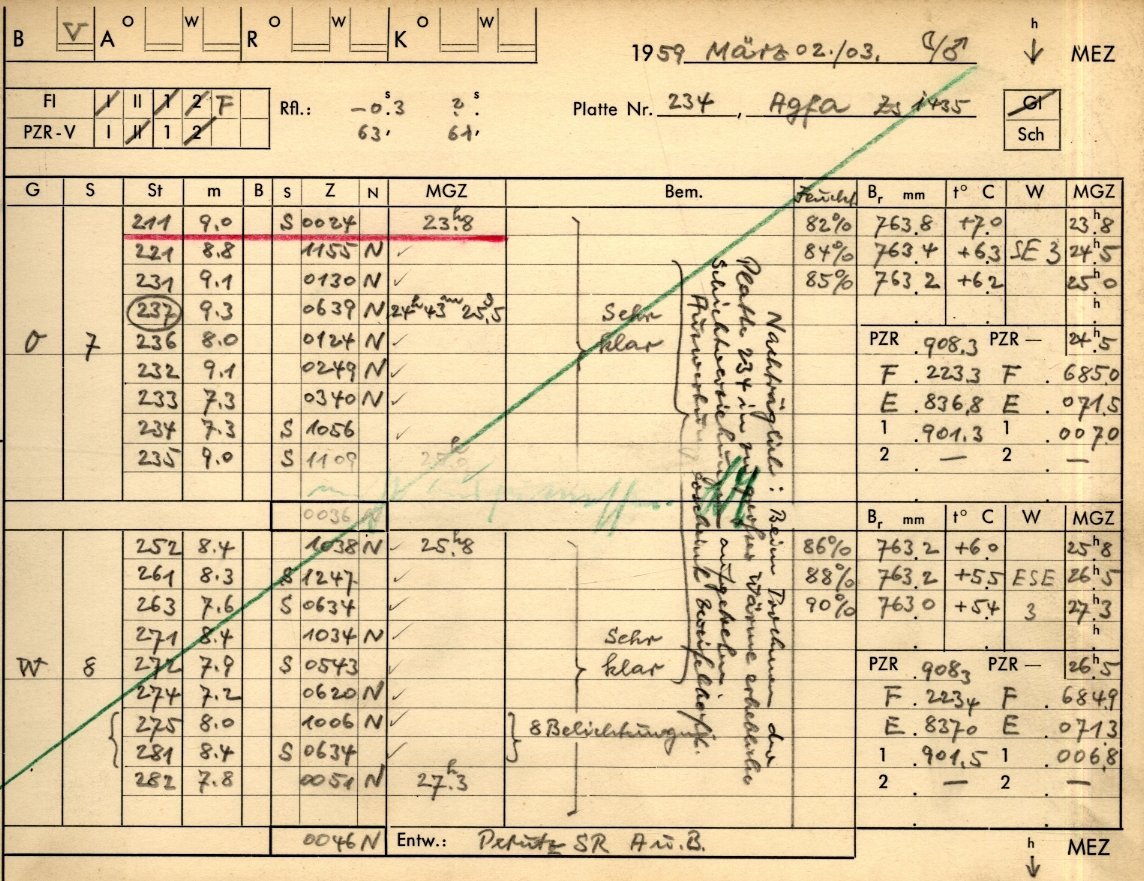 B V A O W R O W K O W
1959 März 02./03.
h
MEZ
FI I II 1 2 F
PZR-V I II 1 2
Rfl.: -0.3 s ?. s
63' 61'
Platte Nr. 234, Agfa 1435
GI
Sch
G S St m B S Z N MGZ Bem. Feucht. Br mm t° C W MGZ
211 9.0 S 0024 23h.8 82% 763.8 +7.0 23h.8
221 8.8 1155 N ✓ 84% 763.4 +6.3 SE 3 24.5
231 9.1 0130 N ✓ 85% 763.2 +6.2 25h.0
237 9.3 0639 N 24h43m25s.5 Sehr h
O 7 236 8.0 0124 N ✓ klar PZR 908.3 PZR — 24h.5
232 9.1 0249 N ✓ F 223.3 F 685.0
233 7.3 0340 N ✓ E 836.8 E 071.5
234 7.3 S 1056 ✓ 1 901.3 1 007.0
235 9.0 S 1109 2 — 2 —
0036
Br mm t° C W MGZ
252 8.4 1038 N ✓ 25h.8 86% 763.2 +6.0 25h.8
261 8.3 S 1247 ✓ 88% 763.2 +5.5 ESE 26h.5
263 7.6 S 0634 ✓ 90% 763.0 +5.4 3 27.3
271 8.4 1034 N ✓ Sehr h
W 8 272 7.9 S 0543 ✓ klar PZR 908.3 PZR — 26h.5
274 7.2 0620 N ✓ F 223.4 F 684.9
275 8.0 1006 N ✓ 8 Belichtungen E 837.0 E 071.3
281 8.4 S 0634 ✓ 1 901.5 1 006.8
282 7.8 0051 N 27h.3 2 — 2 —
0046 N Entw.: Perutz SR A u. B.
h
MEZ
Nachträglich: Beim Trocknen der
Platte 234 in zu großer Wärme erhebliche
Schichtverziehungen aufgetreten
Auswertung dadurch zweifelhaft.